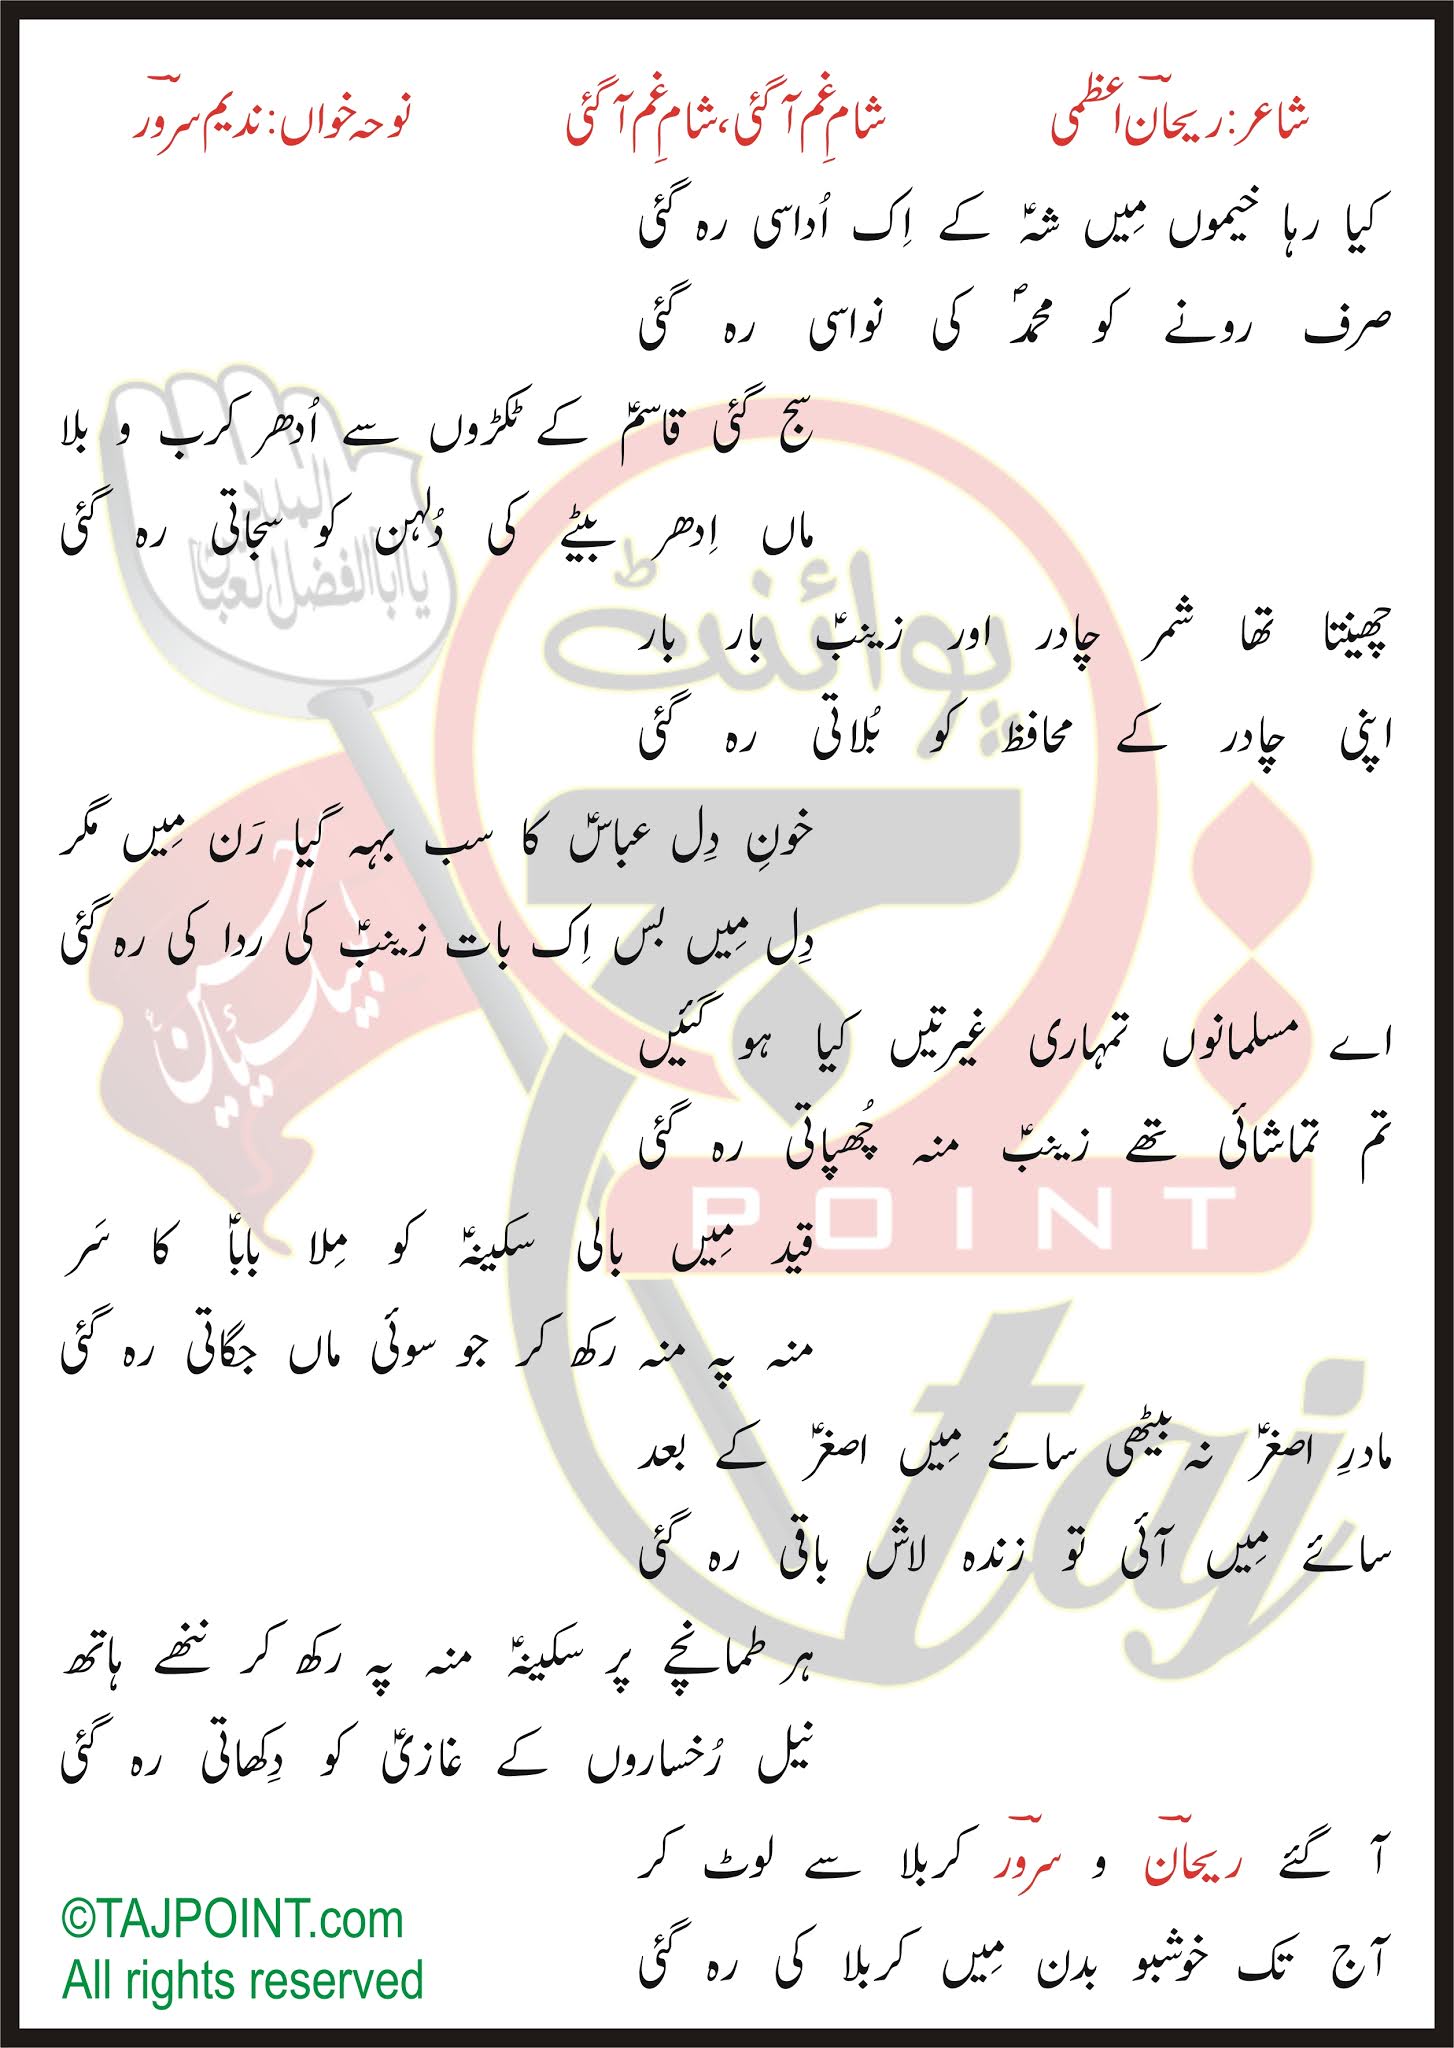 شاعر: ریحانؔ اعظمی شامِ غم آ گئی، شامِ غم آ گئی نوحہ خواں: ندیم سرورؔ
کیا رہا خیموں مِیں شہؑ کے اِک اُداسی رہ گئی
صرف رونے کو محمدؐ کی نواسی رہ گئی
سج گئی قاسمؑ کے ٹکڑوں سے اُدھر کرب و بلا
ماں اِدھر بیٹے کی دُلہن کو سجاتی رہ گئی
چھینتا تھا شمر چادر اور زینبؑ بار بار
اپنی چادر کے محافظ کو بُلاتی رہ گئی
خونِ دِل عباسؑ کا سب بہہ گیا رَن مِیں مگر
دِل مِیں بس اِک بات زینبؑ کی ردا کی رہ گئی
اے مسلمانوں تمہاری غیرتیں کیا ہو گئیں
تم تماشائی تھے زینبؑ منہ چُھپاتی رہ گئی
قید مِیں بالی سکینہؑ کو مِلا باباؑ کا سَر
منہ پہ منہ رکھ کر جو سوئی ماں جگاتی رہ گئی
مادرِ اصغرؑ نہ بیٹھی سائے مِیں اصغرؑ کے بعد
سائے مِیں آئی تو زندہ لاش باقی رہ گئی
ہر طمانچے پر سکینہؑ منہ پہ رکھ کر ننھے ہاتھ
نیل رُخساروں کے غازیؑ کو دِکھاتی رہ گئی
آ گئے ریحانؔ و سرورؔ کربلا سے لوٹ کر
آج تک خوشبو بدن مِیں کربلا کی رہ گئی
©TAJPOINT.com
All rights reserved
المدد
یا ابا الفضل العباسؑ
لبیک یا حسینؑ
پوائنٹ
POINT
taj